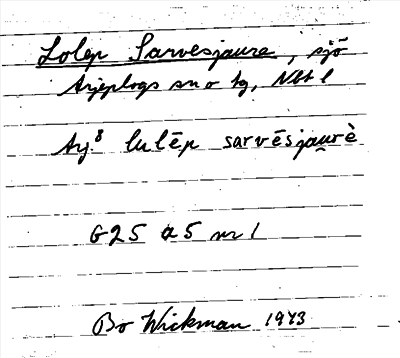 Lolep Sarvesjaure, sjö
Arjeplogs sn o tg, Nbt l
Aj.⁸ lulēp sarvēsjau̯rè
G25 a5 nr 1
Bo Wickman 1943